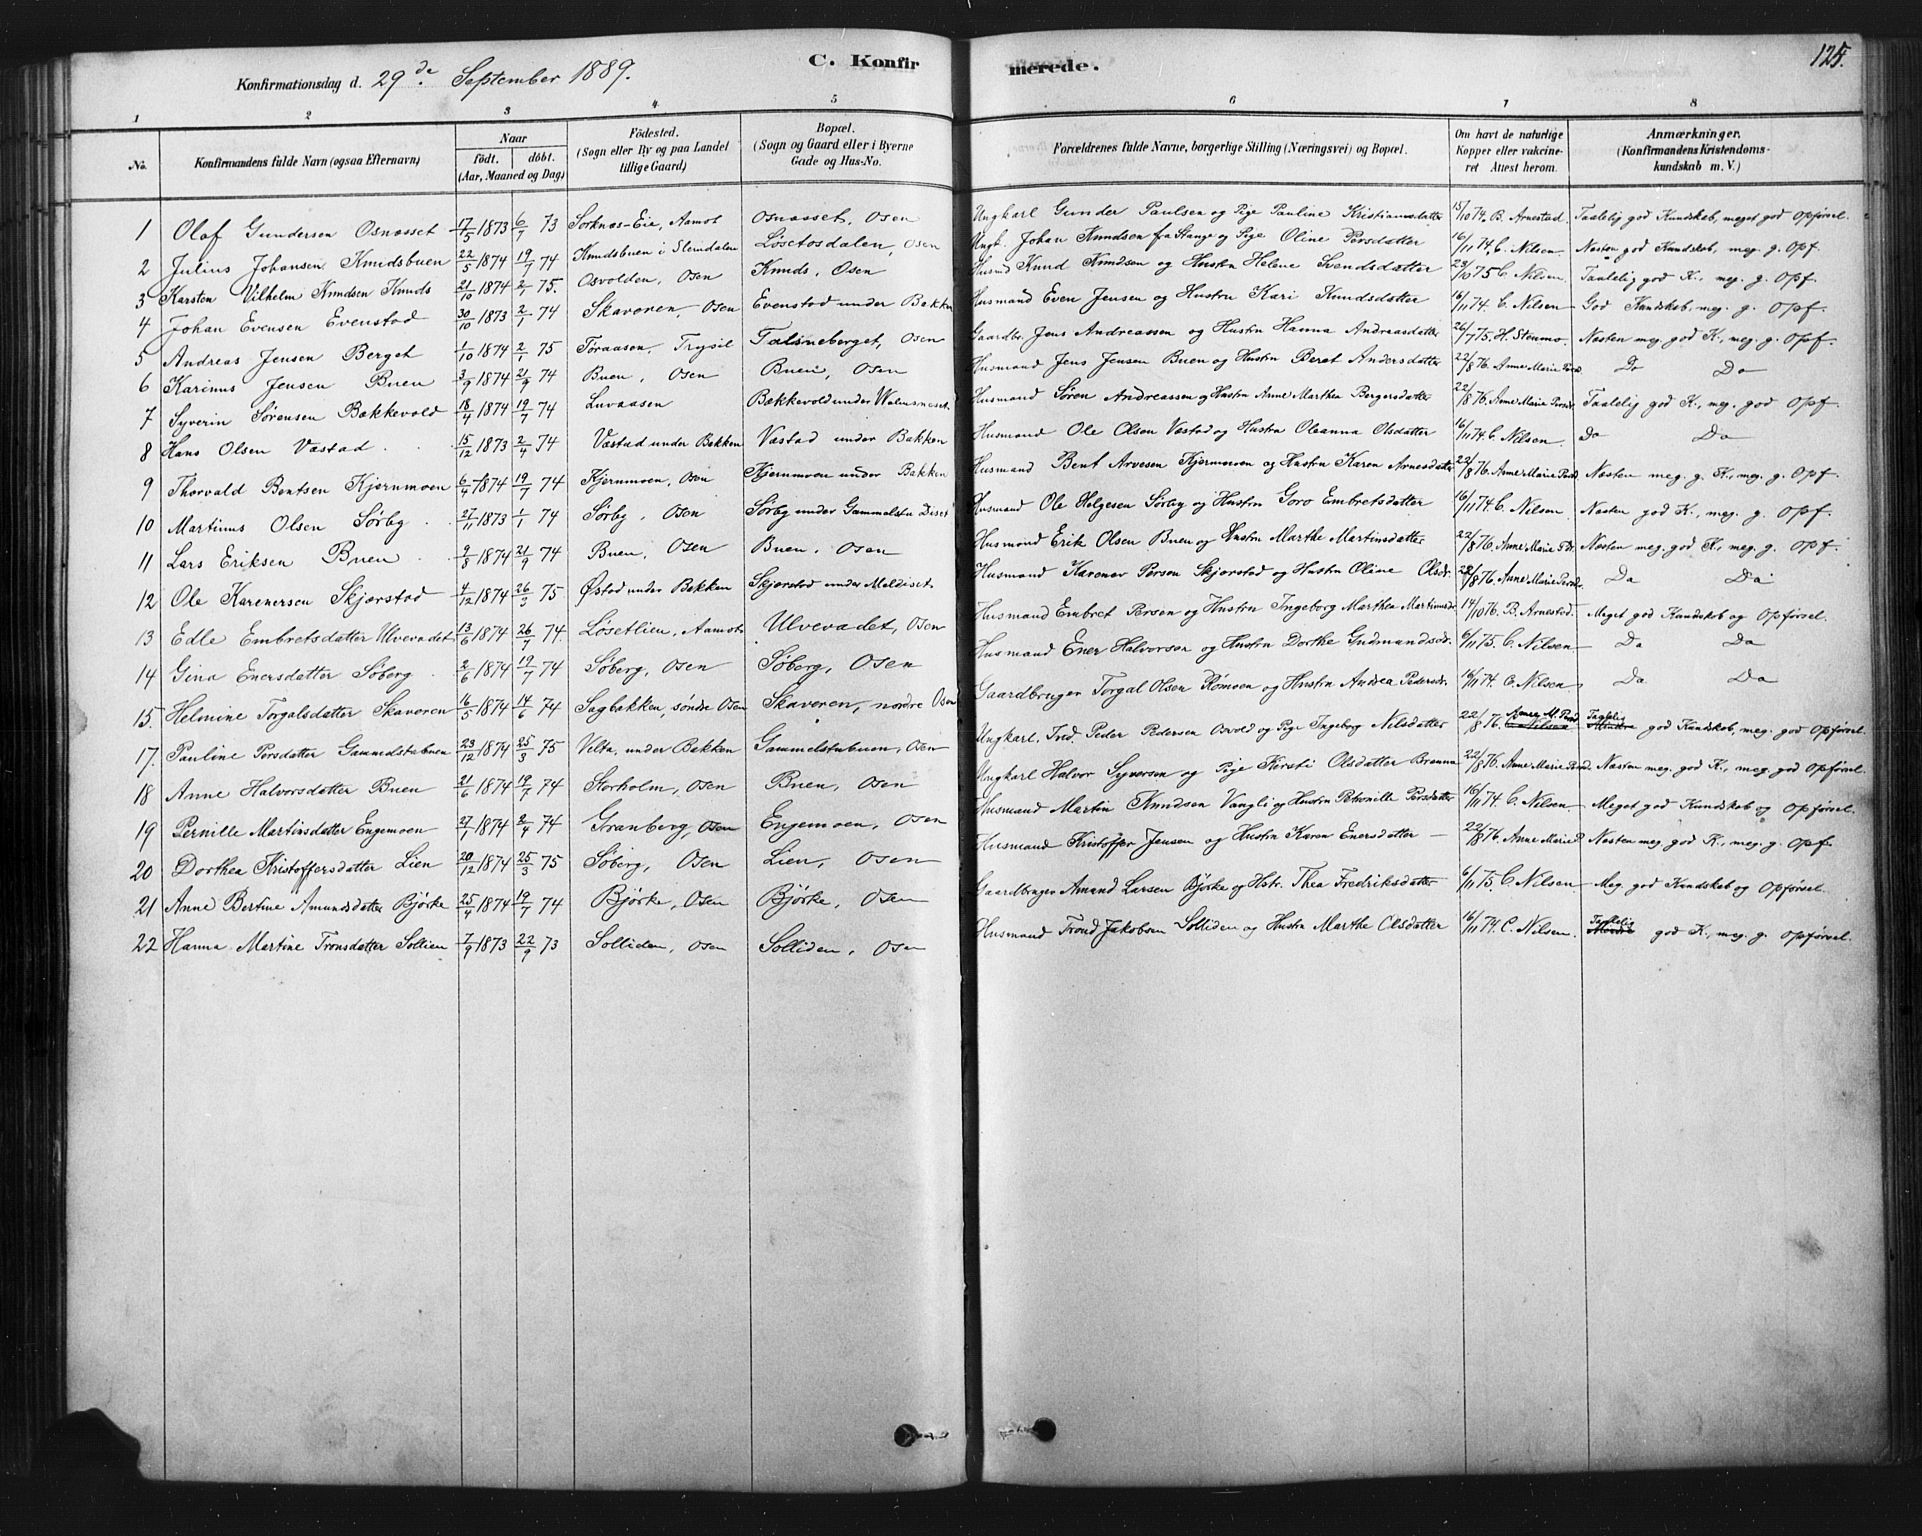 C. Konfirmerede.
125.
Konfirmationsdag d. 29de September 1889.
1 2 3 4 5 6 7 8
No. Konfirmandens fulde Navn (ogsaa Efternavn) Naar födt. döbt. (Aar, Maaned og Dag) Födested. (Sogn eller By og paa Landet tillige Gaard) Bopæl. (Sogn og Gaard eller i Byerne Gade og Hus-No. Forældrenes fulde Navne, borgerlige Stilling (Næringsvei) og Bopæl. Om havt de naturlige Kopper eller vakcineret Attest herom. Anmærkninger. (Konfirmandens Kristendomskundskab m. V.)
1 Olaf Gundersen Osnæsset 17/5 1873 6/7 73 Sorknæs-Eie, Aamot Osnæsset, Osen Ungkarl Gunder Paulsen og Pige Pauline Kristiansdatter 15/10 74. B. Arnestad. Taalelig god Kundskab, meget god Opførsel.
2 Julius Johansen Knudsbuen 22/5 1874 19/7 74 Knudsbuen i Slemdalen Løsetosdalen, Osen Ungk. Johan Knudsen fra Stange og Pige Oline Persdatter 16/11 74. C. Nilsen. Næsten god Kundskab, meg. g. Opf.
3 Karsten Vilhelm Knudsen Knuds 21/10 1874 2/1 75. Osvolden, Osen Knuds, Osen Husmd Knud Knudsen og Hustru Helene Svendsdatter 23/10 75 C. Nilsen. Taalelig god K., meg. g. Opf.
4 Johan Evensen Evenstad 30/10 1873 2/1 74 Skaveren, Osen Evenstad under Bakken Husmand Even Jensen og Hustru Kari Knudsdatter 16/11 74. C. Nilsen God Kundskab, meg. g. Opf.
5 Andreas Jensen Berget 1/10 1874 2/1 75 Töraasen, Trysil Talsneberget, Osen Gaardbr. Jens Andreassen og Hustru Hanna Andreasdatter 26/7 75. H. Stenmo. Næsten meg. god K., meg. g. Opf.
6 Karinus Jensen Buen 3/9 1874 21/9 74 Buen, Osen Buen, Osen Husmand Jens Jensen Buen og Hustru Beret Andersdatter 22/8 76. Anne Marie Persd. Do Do
7 Syverin Sörensen Bækkevold 18/4 1874 19/7 74 Luvaasen Bækkevold under Valmsnæset Husmand Søren Andreassen og Hustru Anne Marthea Bergersdatter 22/8 76. Anne Marie Persd. Taalelig god K., meg. god Opf.
8 Hans Olsen Væstad 15/12 1873 2/4 74 Væstad under Bakken Væstad under Bakken Husmand Ole Olsen Væstad og Hustru Oleanna Olsdatter 16/11 74. C. Nilsen. Do Do
9 Thorvald Bentsen Kjernmoen 6/4 1874 19/7 74 Kjernmoen, Osen Kjernmoen under Bakken Husmand Bent Arvesen Kjernmoen og Hustru Karen Arnesdatter 22/8 76. Anne Marie Persd. Næsten meg. g. K., meg. g. Opf.
10 Martinus Olsen Sörby 27/11 1873 1/1 74 Sörby, Osen Sörby under Gammelstu Diset Husmand Ole Helgesen Sörby og Hustru Goro Embretsdatter 16/11 74. C. Nilsen. Næsten god K., meg. g. Opf.
11 Lars Eriksen Buen 2/8 1874 21/9 74 Buen, Osen Buen, Osen Husmand Erik Olsen Buen og Hustru Marthe Martinsdatter 22/8 76. Anne Marie Pdr. Næsten meg. god K., meg. g. Opf.
12 Ole Karenersen Skjærstad 4/12 1874 26/3 75 Østad under Bakken Skjærstad under Meldiset Husmand Karener Persen Skjærstad og Hustru Oline Olsdr. 22/8 76. Anne Marie Persd. Do Do
13 Edle Embretsdatter Ulvevadet 13/6 1874 26/7 74. Løsetlien, Aamot Ulvevadet, Osen Husmand Embret Persen og Hustru Ingeborg Marthea Martinusdr. 14/10 76. B. Arnestad. Meget god Kundskab og Opførsel.
14 Gina Enersdatter Söberg 2/6 1874 19/7 74 Söberg, Osen Söberg, Osen Husmand Ener Halvorsen og Hustru Dorthe Gudmundsdr. 6/11 75. C. Nilsen Do Do
15 Helmine Torgalsdatter Skaveren 16/5 1874 14/6 74 Sagbakken, søndre Osen Skaveren, nordre Osen Gaardbruger Torgal Olsen Römoen og Hustru Andrea Pedersdr. 16/11 74. C. Nilsen Do Do
17. Pauline Persdatter Gammelstubuen 23/12 1874 25/3 75 Velta, under Bakken Gammelstubuen, Osen Ungkarl. Fred. Peder Pedersen Osvold og Pige Ingeborg Nilsdatter 22/8 76. Anne M. Persd. Taalelig god Kundskab, meg. god Opførsel.
18 Anne Halvorsdatter Buen 21/6 1874 19/7 74 Storholm, Osen Buen, Osen Ungkarl Halvor Syversen og Pige Kersti Olsdatter Brenna 22/8 76. Anne Marie Persd. Næsten meg. god K., meg. god Opførsel.
19 Pernille Martinsdatter Engemoen 27/1 1874 2/4 74 Granberg, Osen Engemoen, Osen Husmand Martin Knudsen Vangli og Hustru Petronille Persdatter 16/11 74. C. Nilsen Meget god Kundskab og Opførsel.
20 Dorthea Kristoffersdatter Lien 20/12 1874 25/3 75 Söberg, Osen Lien, Osen Husmand Kristoffer Jensen og Hustru Karen Enersdatter 22/8 76. Anne Marie P. Næsten meg. god K., meg. g. Opf.
21 Anne Bertine Amundsdatter Bjørke 25/4 1874 19/7 74 Bjørke, Osen Bjørke, Osen Gaardbruger Amund Larsen Bjørke og Hstr. Thea Fredriksdatter 6/11 75. C. Nilsen Meg. god Kundskab og Opførsel.
22 Hanna Martine Tronsdatter Sollien 7/9 1873 22/9 73 Solliden, Osen Solliden, Osen Husmand Trond Jakobsen Solliden og Hustru Marthe Olsdatter 16/11 74. C. Nilsen. Taalelig god K., meg. g. Opførsel.